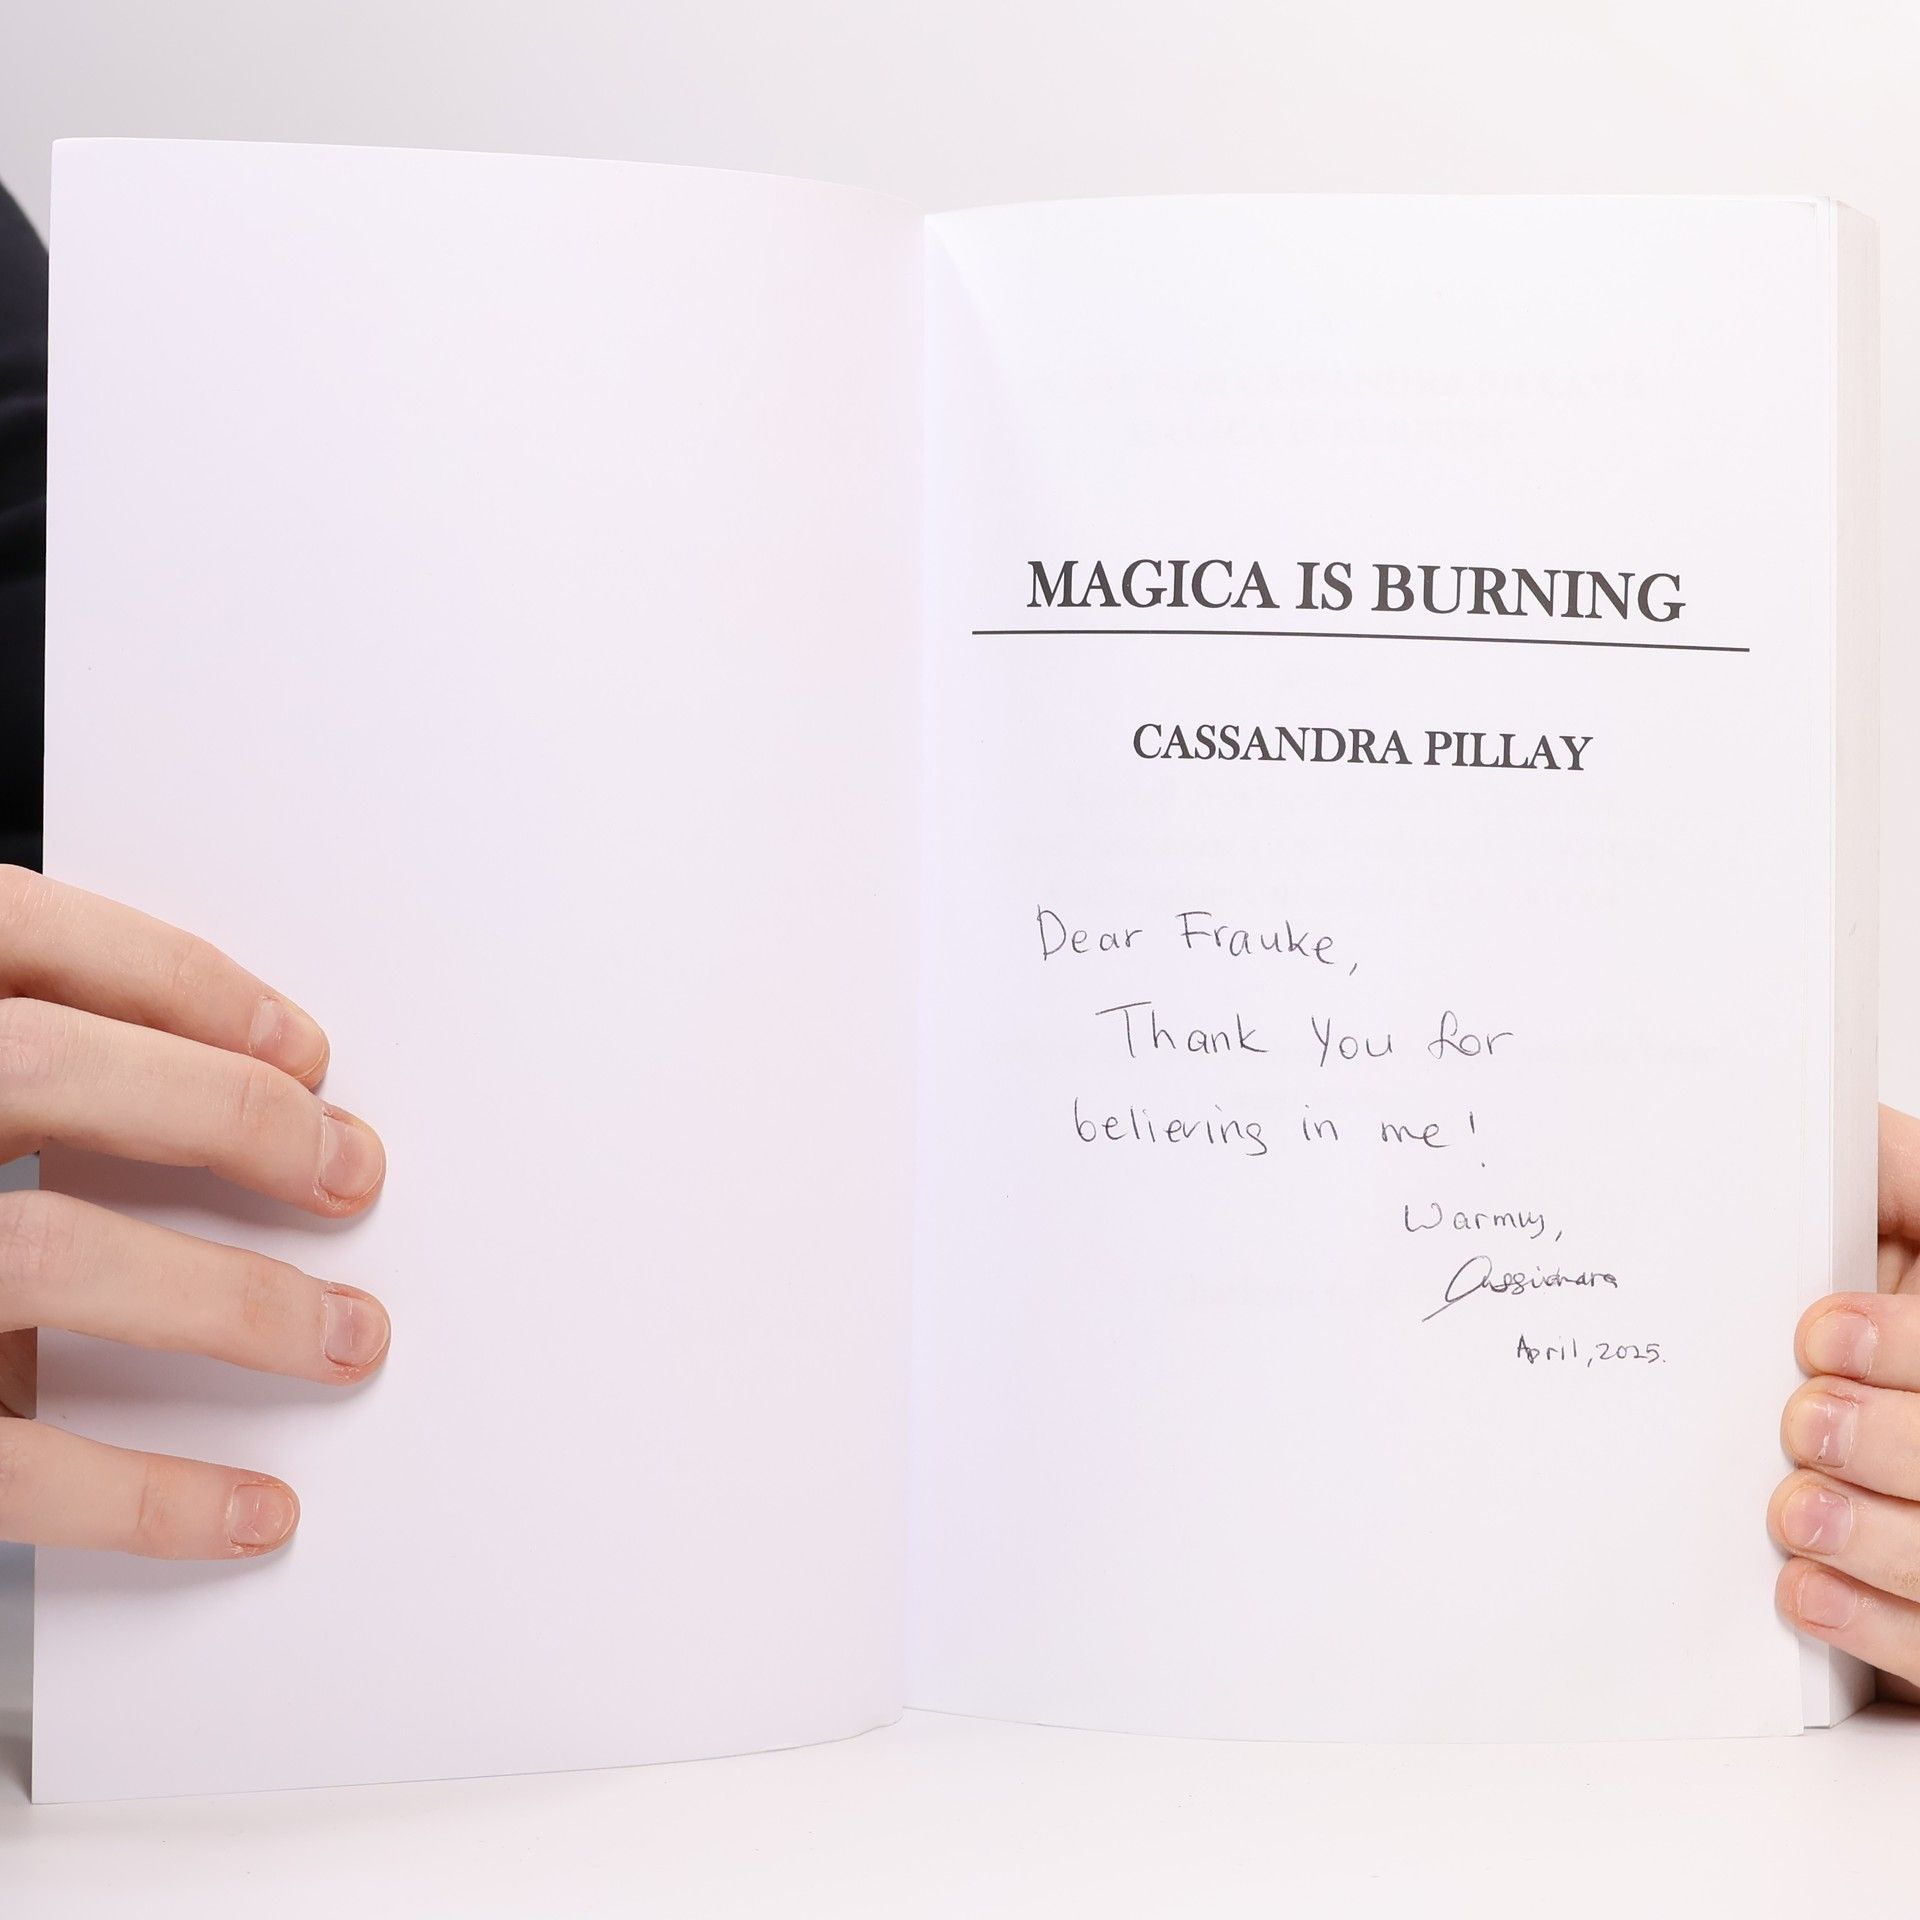 MAGICA IS BURNING
CASSANDRA PILLAY
Dear Frauke,
Thank You for
believing in me!
Warmly,
April, 2025.